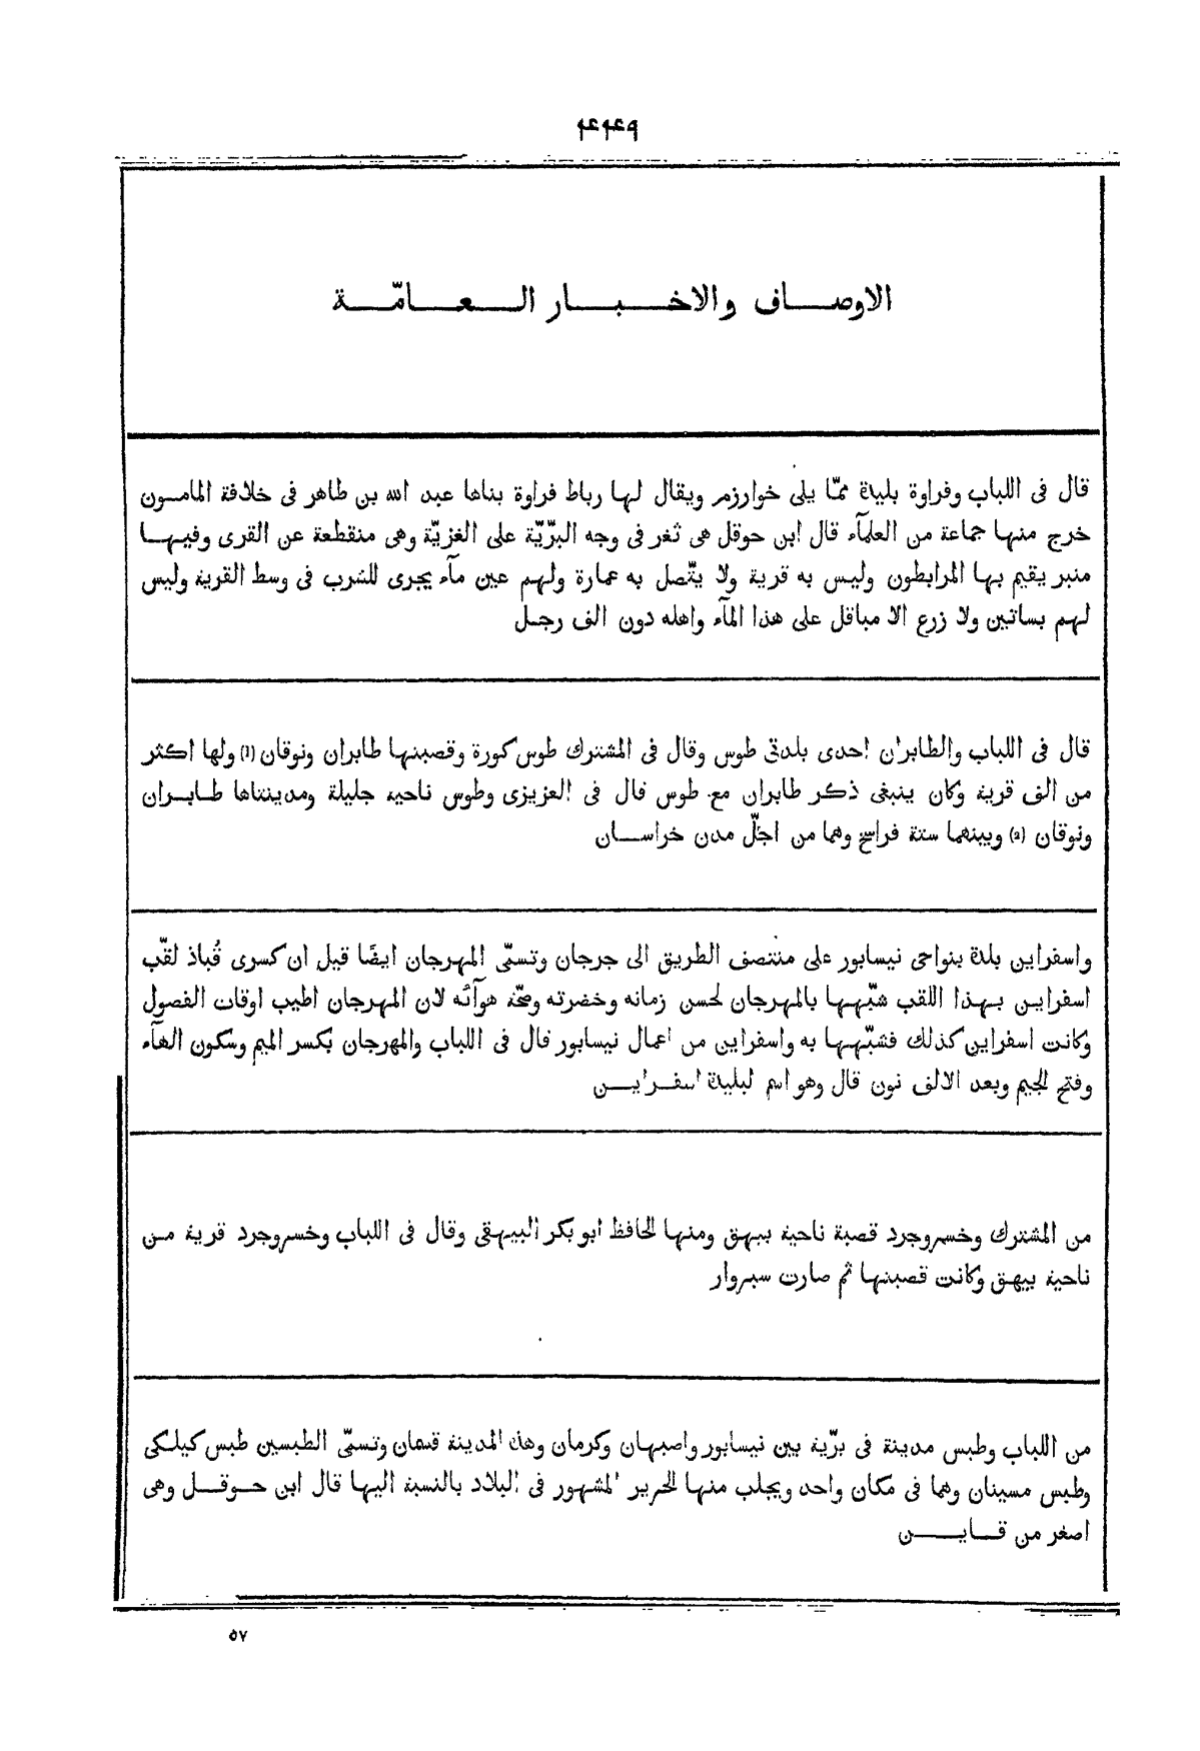 ۴۴۹
الاوصاف والاخبار العامّة
قال فى اللباب وفراوة بليدة ممّا يلى خوارزم ويقال لها رباط فراوة بناها عبد الله بن طاهر فى خلافة المامون
خرج منها جماعة من العلمآء قال ابن حوقل هى ثغر فى وجه البرّيّة على الغزيّة وهى منقطعة عن القرى وفيها
منبر يقيم بها المرابطون وليس به قرية ولا يتّصل به عمارة ولهم عين مآء يجرى للشرب فى وسط القرية وليس
لهم بساتين ولا زرع الا مباقل على هذا المآء واهله دون الف رجل
قال فى اللباب والطابران احدى بلدتى طوس وقال فى المشترك طوس كورة وقصبتها طابران ونوقان (۱) ولها اكثر
من الف قرية وكان ينبغى ذكر طابران مع طوس قال فى العزيزى وطوس ناحية جليلة ومدينتاها طابران
ونوقان (۵) وبينهما ستة فراسخ وهما من اجلّ مدن خراسان
واسفراين بلدة بنواحى نيسابور على منتصف الطريق الى جرجان وتسمّى المهرجان ايضًا قيل ان كسرى قُباذ لقّب
اسفراين بهذا اللقب شبّهها بالمهرجان لحسن زمانه وخضرته وصحّة هوآئه لان المهرجان اطيب اوقات الفصول
وكانت اسفراين كذلك فشبّهها به واسفراين من اعمال نيسابور قال فى اللباب والمهرجان بكسر الميم وسكون الهآء
وفتح الجيم وبعد الالف نون قال وهو اسم لبليدة اسفراين
من المشترك وخسروجرد قصبة ناحية بيهق ومنها الحافظ ابو بكر البيهقى وقال فى اللباب وخسروجرد قرية من
ناحية بيهق وكانت قصبتها ثم صارت سبروار
من اللباب وطبس مدينة فى برّية بين نيسابور واصبهان وكرمان وهذه المدينة قسمان وتسمّى الطبسين طبس كيلكى
وطبس مسينان وهما فى مكان واحد ويجلب منها الحرير المشهور فى البلاد بالنسبة اليها قال ابن حوقل وهى
اصغر من قاين
۵۷